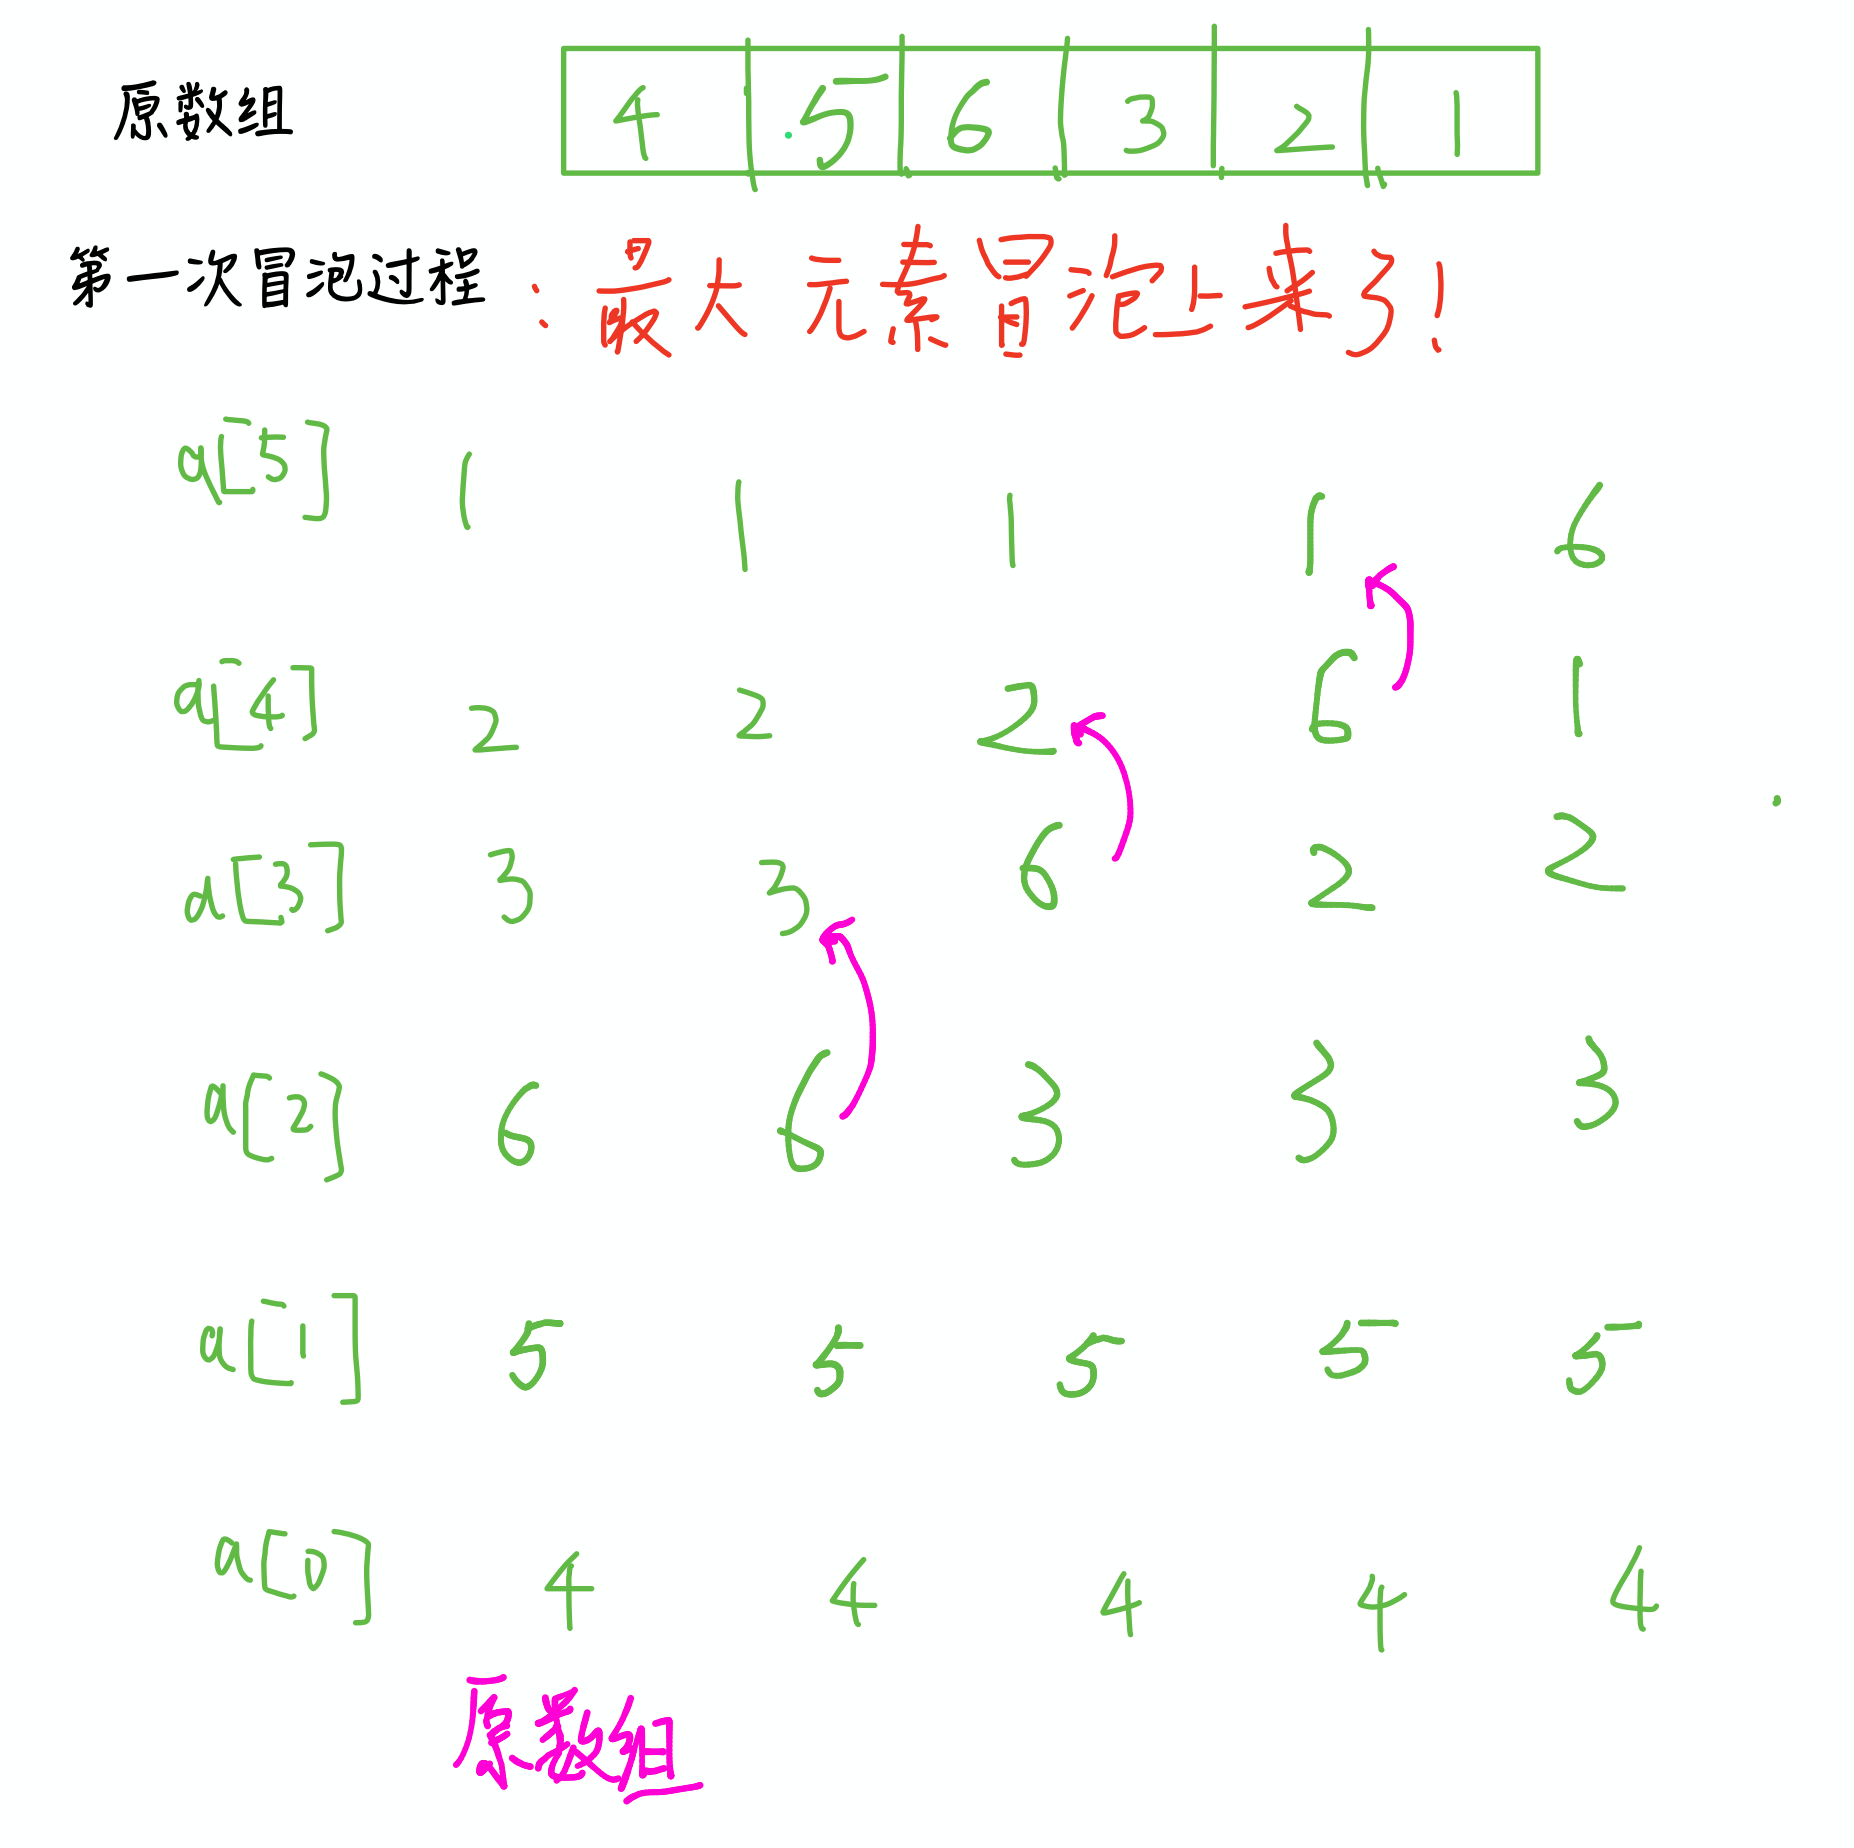 原数组 4 5 6 3 2 1
第一次冒泡过程 : 最大元素冒泡上来了!
a[5] 1 1 1 1 6
a[4] 2 2 2 6 1
a[3] 3 3 6 2 2
a[2] 6 6 3 3 3
a[1] 5 5 5 5 5
a[0] 4 4 4 4 4
原数组